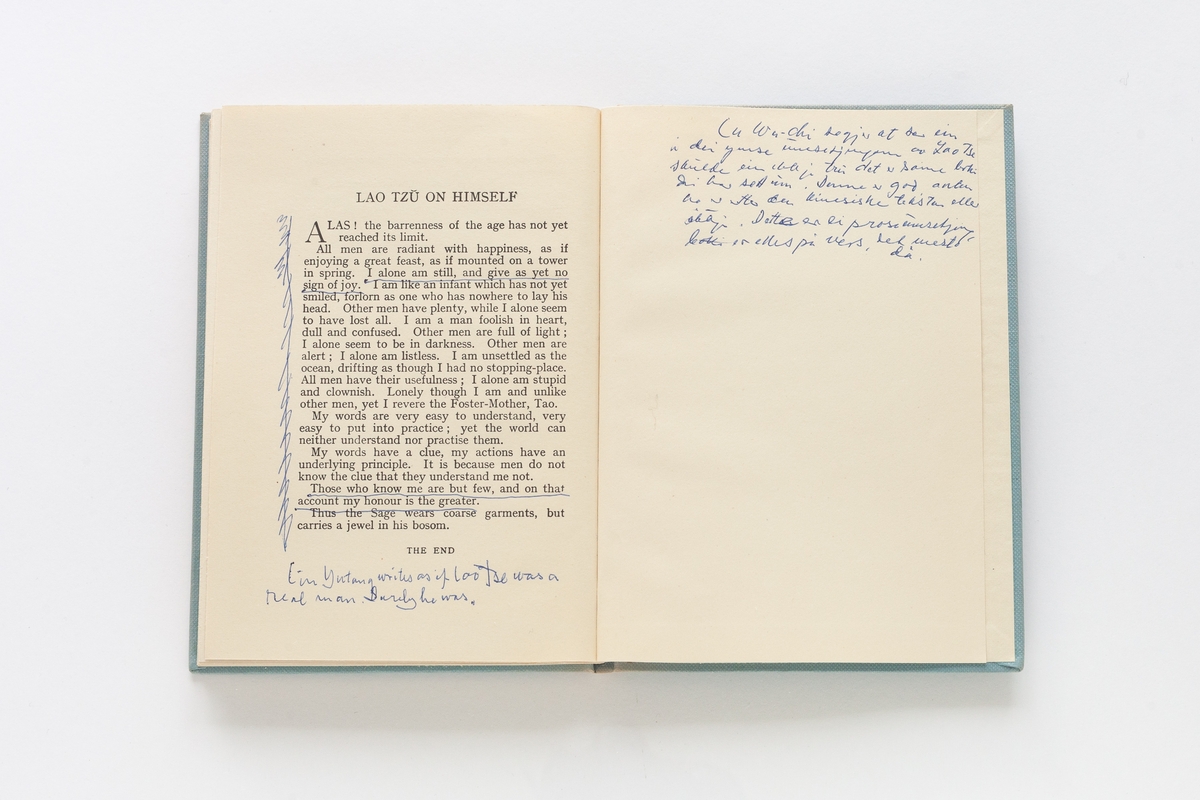 LAO TZŬ ON HIMSELF
ALAS! the barrenness of the age has not yet
reached its limit.
All men are radiant with happiness, as if
enjoying a great feast, as if mounted on a tower
in spring. I alone am still, and give as yet no
sign of joy. I am like an infant which has not yet
smiled, forlorn as one who has nowhere to lay his
head. Other men have plenty, while I alone seem
to have lost all. I am a man foolish in heart,
dull and confused. Other men are full of light;
I alone seem to be in darkness. Other men are
alert; I alone am listless. I am unsettled as the
ocean, drifting as though I had no stopping-place.
All men have their usefulness; I alone am stupid
and clownish. Lonely though I am and unlike
other men, yet I revere the Foster-Mother, Tao.
My words are very easy to understand, very
easy to put into practice; yet the world can
neither understand nor practise them.
My words have a clue, my actions have an
underlying principle. It is because men do not
know the clue that they understand me not.
Those who know me are but few, and on that
account my honour is the greater.
Thus the Sage wears coarse garments, but
carries a jewel in his bosom.
THE END
Lin Yutang writes as if Lao Tse was a
real man. Surely he was.
Wu-chi segjer at ser ein
dei ymse umsetjingam av Lao Tse
skulde ein tru det same
dei har sett um. Denne god
den kinesiske teksten eller
Dette er ei prosaumsetjing,
er elles på vers, det meste
då.